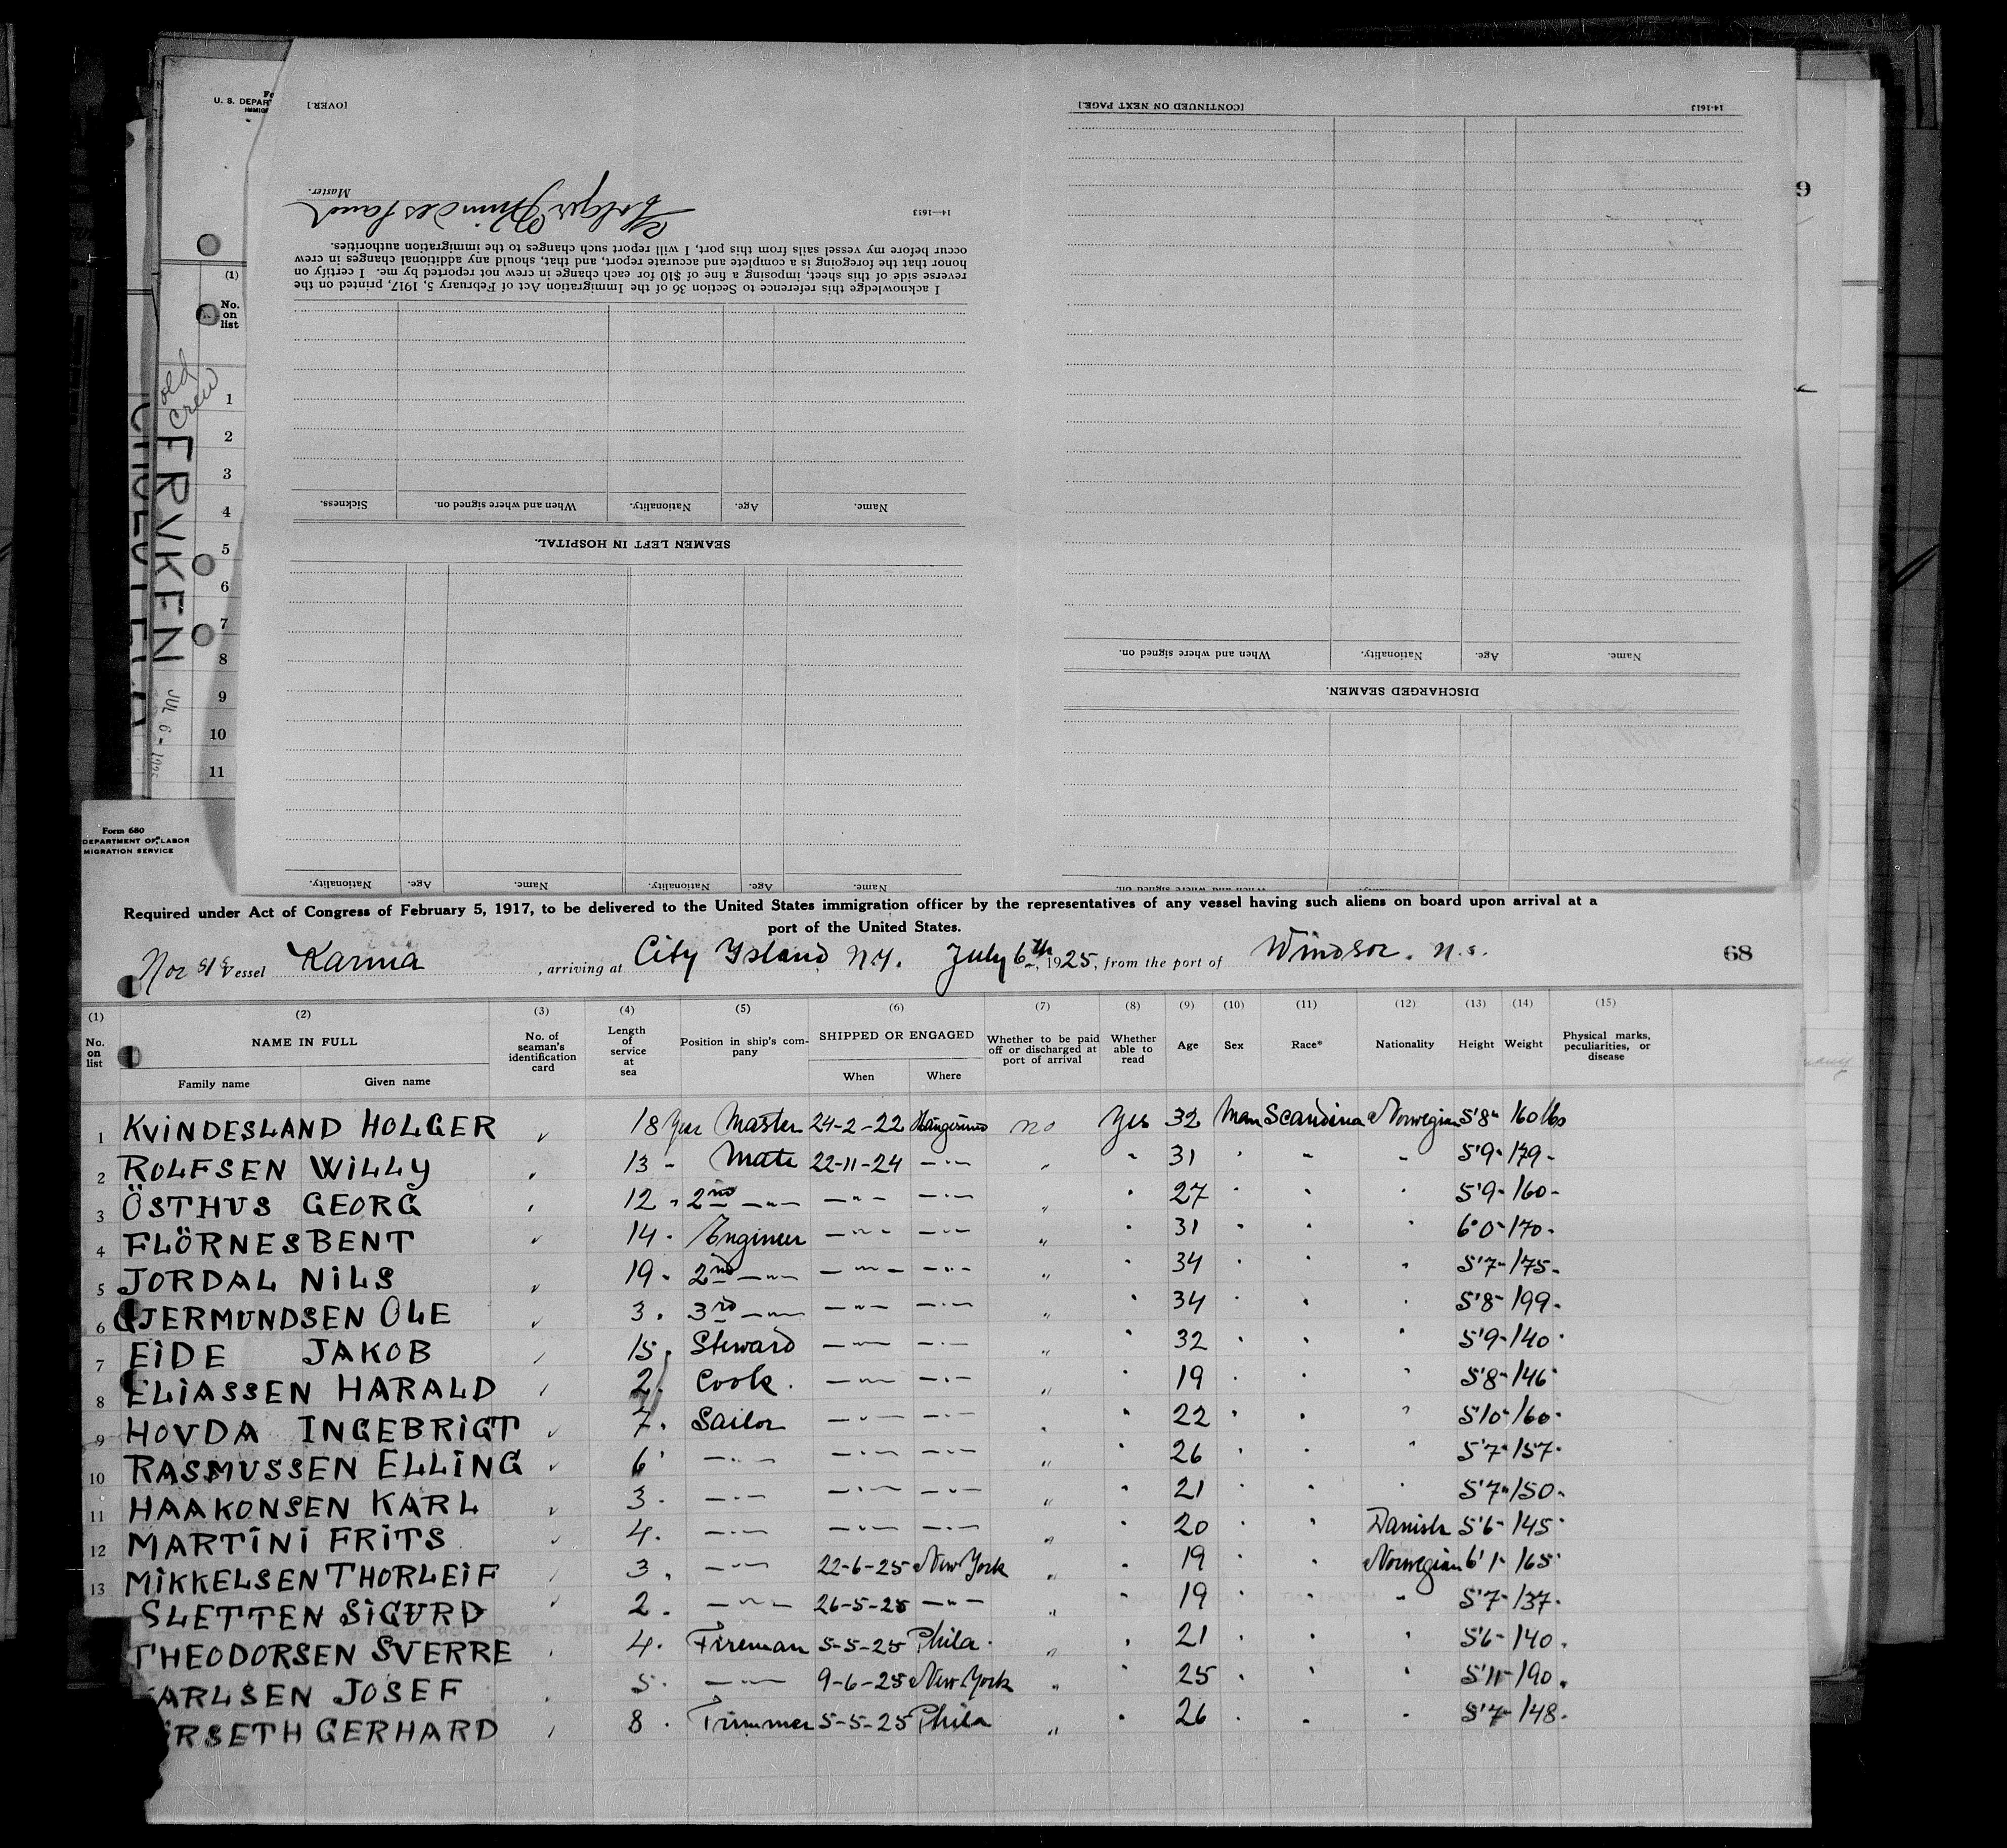 Fo
U. S. DEPAR
IMMIG
[OVER.]
Master.
Holger Kvindesland
14—1613
I acknowledge this reference to Section 36 of the Immigration Act of February 5, 1917, printed on the
reverse side of this sheet, imposing a fine of $10 for each change in crew not reported by me. I certify on
honor that the foregoing is a complete and accurate report, and that, should any additional changes in crew
occur before my vessel sails from this port, I will report such changes to the immigration authorities.
Name. Age. Nationality. When and where signed on. Sickness.
SEAMEN LEFT IN HOSPITAL.
Name. Age. Nationality. Name. Age. Nationality.
[CONTINUED ON NEXT PAGE.]
14-1613
Name. Age. Nationality. When and where signed on.
DISCHARGED SEAMEN.
9
(1)
No.
on
list
old
crew
1
2
3
4
5
6
7
8
9
10
11
FRVKEN
JUL 6 - 1925
Form 680
DEPARTMENT OF LABOR
MIGRATION SERVICE
Required under Act of Congress of February 5, 1917, to be delivered to the United States immigration officer by the representatives of any vessel having such aliens on board upon arrival at a
port of the United States.
Nor S/S Vessel Karma, arriving at City Island N.Y. July 6th, 1925, from the port of Windsor. N.S. 68
(1) (2) (3) (4) (5) (6) (7) (8) (9) (10) (11) (12) (13) (14) (15)
No. on list NAME IN FULL Family name Given name No. of seaman's identification card Length of service at sea Position in ship's company SHIPPED OR ENGAGED When Where Whether to be paid off or discharged at port of arrival Whether able to read Age Sex Race* Nationality Height Weight Physical marks, peculiarities, or disease
1 KVINDESLAND HOLGER ✓ 18 Master 24-2-22 no Yes 32 Man Scandina Norwegian 5'8" 160 lbs
2 ROLFSEN WILLY 13 - Mate 22-11-24 —"— " " 31 " " " 5'9" 179 -
3 ÖSTHUS GEORG 12 " 2nd —"— —"— —"— " " 27 " " " 5'9" 160 -
4 FLÖRNES BENT 14 " Engineer —"— —"— " " 31 " " " 6'0" 170 -
5 JORDAL NILS 19 " 2nd —"— —"— —"— " " 34 " " " 5'7" 175 -
6 GJERMUNDSEN OLE 3 " 3rd —"— —"— —"— " " 34 " " " 5'8" 199 -
7 EIDE JAKOB 15 " Steward —"— —"— " " 32 " " " 5'9" 140 "
8 ELIASSEN HARALD 2 " Cook. —"— —"— " " 19 " " " 5'8" 146 "
9 HOVDA INGEBRIGT 7 " Sailor —"— —"— " " 22 " " " 5'10" 160 "
10 RASMUSSEN ELLING 6 " —"— —"— —"— " " 26 " " " 5'7" 157 "
11 HAAKONSEN KARL 3 " —"— —"— —"— " " 21 " " " 5'7" 150 "
12 MARTINI FRITS 4 " —"— —"— —"— " " 20 " " Danish 5'6" 145 "
13 MIKKELSEN THORLEIF 3 " —"— 22-6-25 New York " " 19 " " Norwegian 6'1" 165 "
SLETTEN SIGURD 2 " —"— 26-5-25 —"— " " 19 " " " 5'7" 137 "
THEODORSEN SVERRE 4 " Fireman 5-5-25 Phila " " 21 " " " 5'6" 140 "
ARLSEN JOSEF 5 " —"— 9-6-25 New York " " 25 " " " 5'11" 190 "
RSETH GERHARD 8 " Trimmer 5-5-25 Phila " " 26 " " " 5'7" 148 "